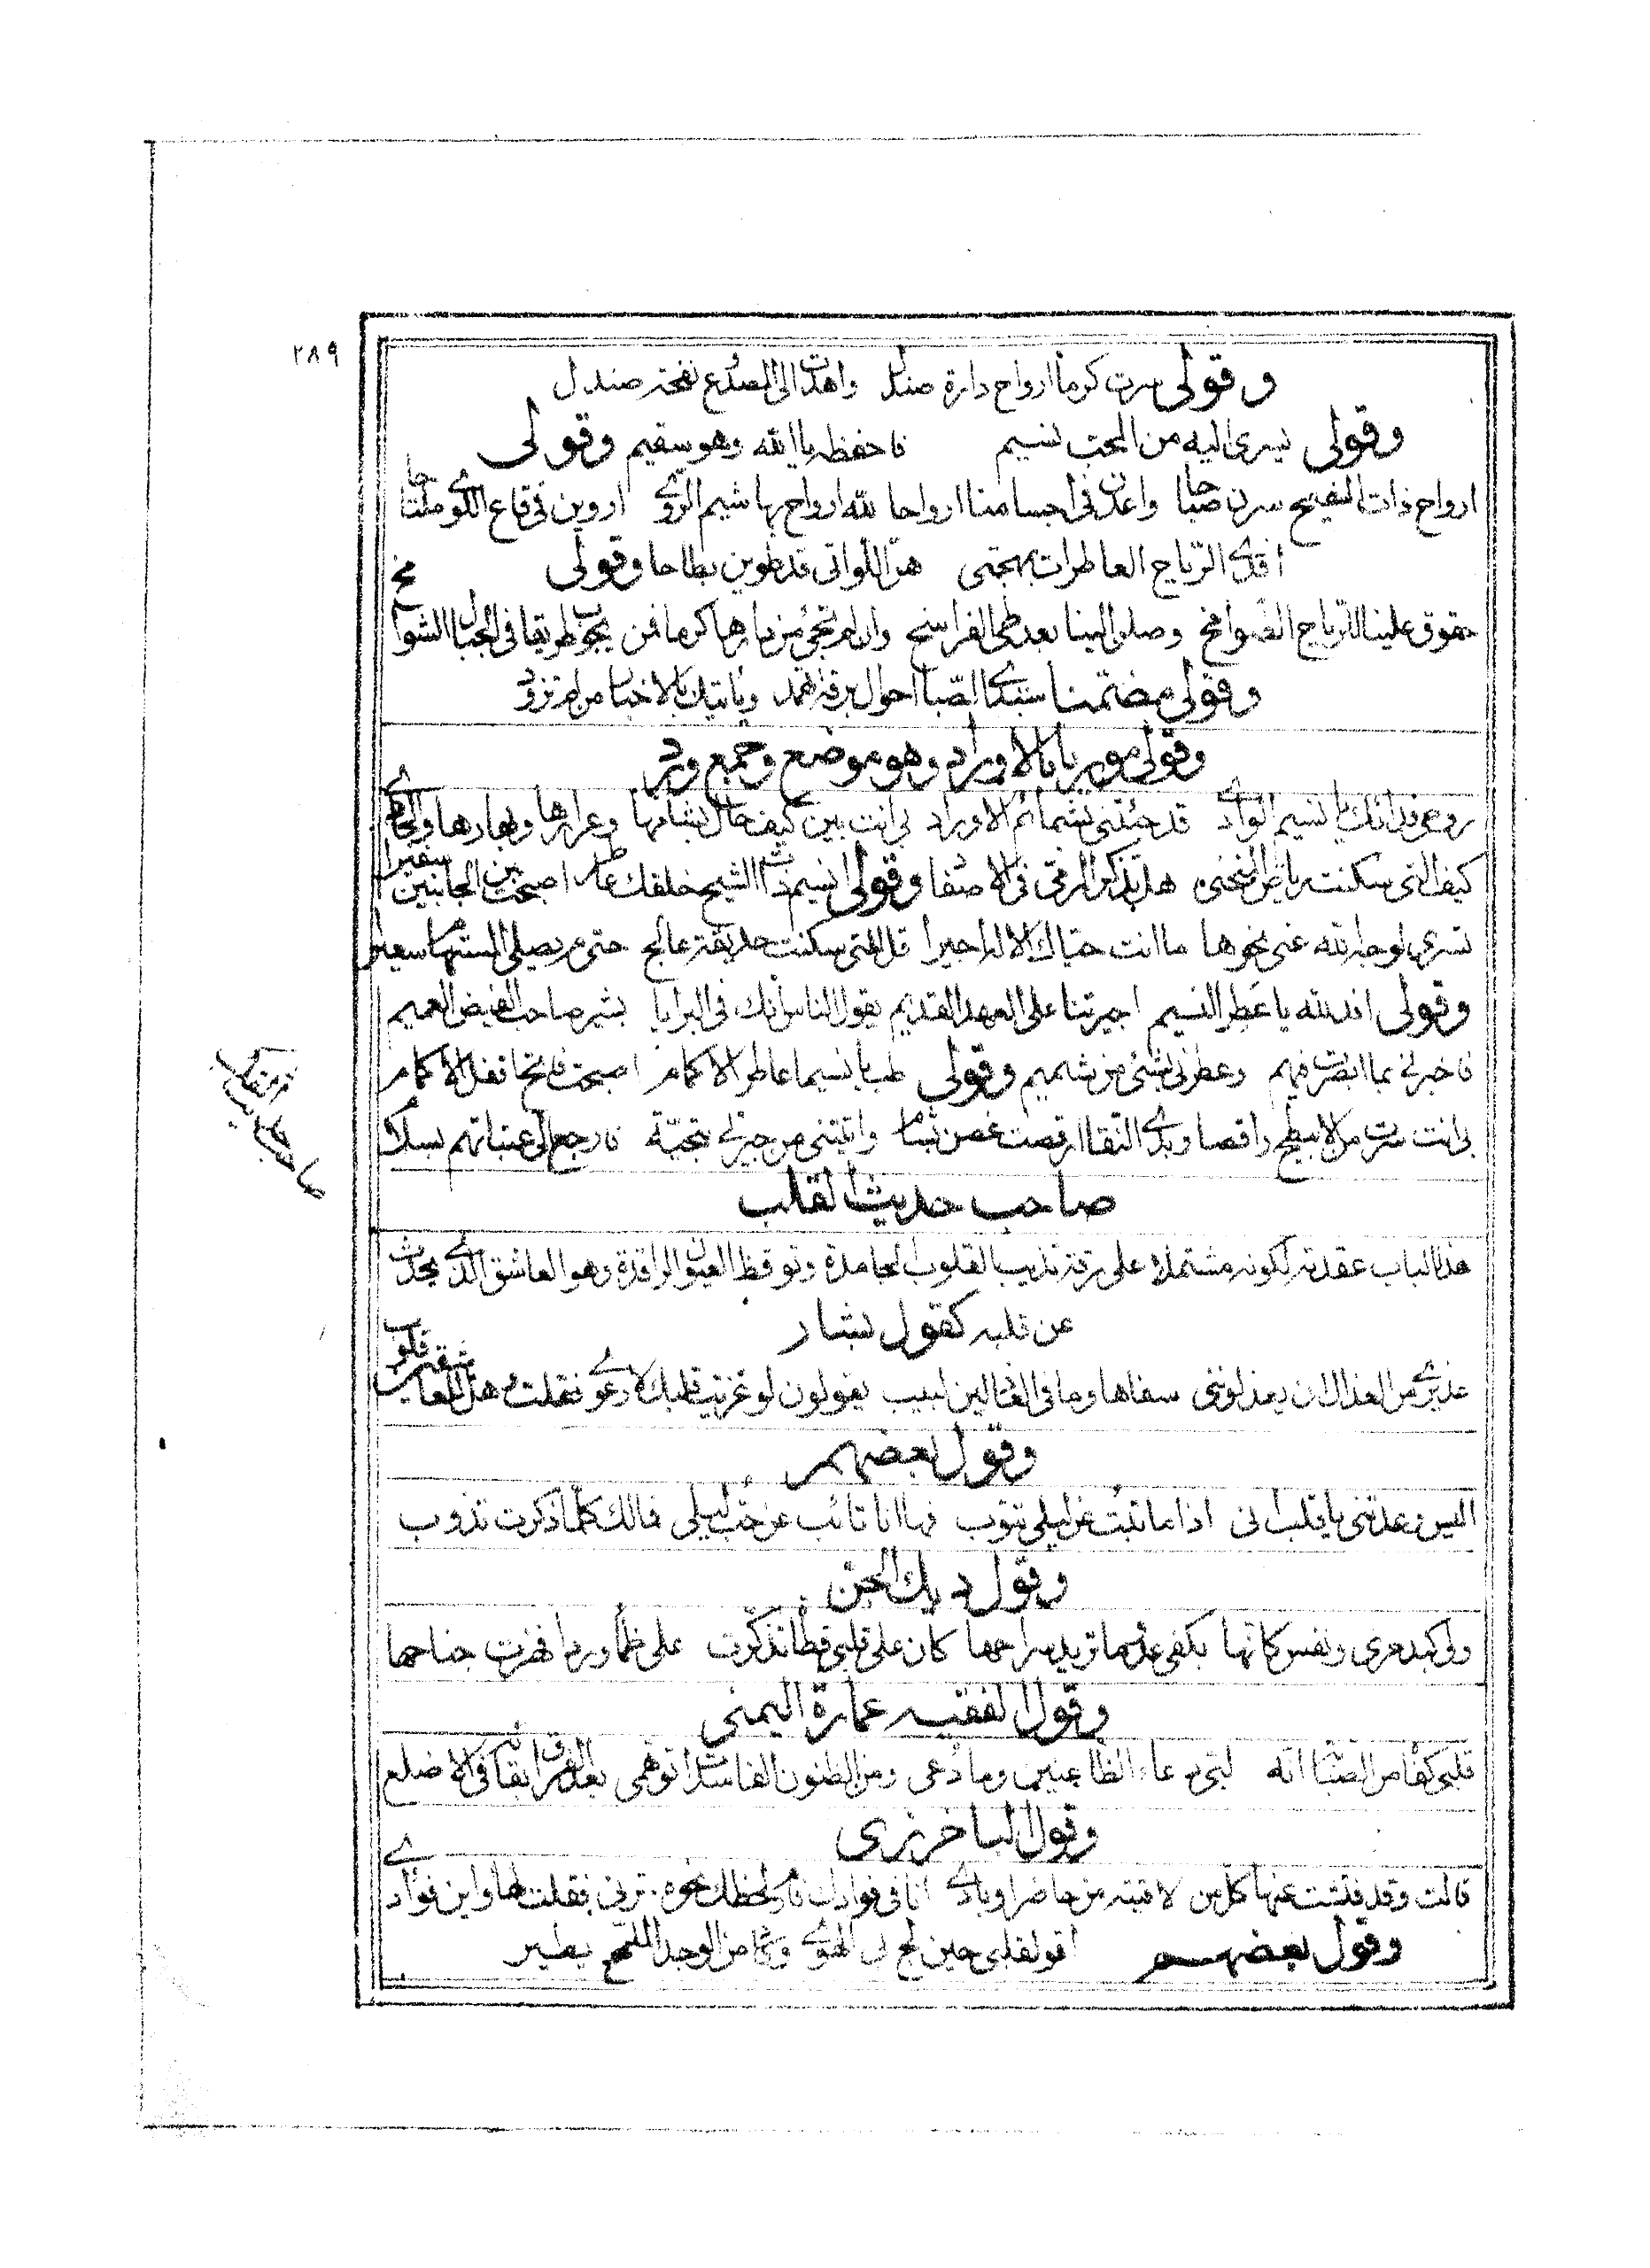 ٢٨٩
وقولي سرت كرما ارواح دارة صندل واهدت الى المصدع نفحة صندل
وقولي يسرى اليه من المحب نسيم فاحفظه يا الله وهو سقيم وقولى
ارواح ذات الشيح سرن صباحا واعدن فى اجسامنا ارواحا لله ارواح بها شيم الروى اروين فى قاع اللوى ملتاحا
افدى الرياح العاطرات بمهجتى هن اللواتى قد طوين بطاحا وقولى
حقوق علينا للرياح الفوايح وصلن الينا بعد طى الفراسخ وان لم تجئ من دارها كرما فمن يجوب طريقا فى الجبال الشوامخ
وقولى مضمنا ستبدى الصبا احوال برقة ثهمد وياتيك بالاخبار من لم تزود
وقولى موريا بالاوراد وهو موضع وجمع ورد
روحى فدائك يا نسيم الوادى قد جئتنى بشمائم الاوراد بى انت بين كيف حال بشامها وعرارها وبهارها والجادى
كيف التى سكنت رياض المنحنى هل تذكرن الرقى فى الاصفاد وقولى انسيم ذات الشيح خلقك عاطر اصبحت بين الجانبين سفيرا
تسرى لوجه الله عنى نحوها ما انت حياك الاله اجيرا قل للتى سكنت حديقة عالج حتى م يصلى المستهام سعيرا
وقولى افد لله يا عطر النسيم اجيرتنا على العهد القديم يقول الناس انك فى البرايا بشير صاحب الفيض العميم
فاخبرنى بما ابصرت فيهم وعطرنى بشئ من شميم وقولى طب يا نسيما عاطر الاكمام اصبحت فاتحا قفل الاكمام
بى انت سرت من الابيطح راقصا وبذى النقا ارقصت غصن بشام واتيتنى من جيرتى بتحية فارجع الى عتباتهم بسلام
صاحب حديث القلب
صاحب حديث القلب
هذا الباب عقدته لكونه مشتملا على رقة تذيب القلوب الجامدة وتوقظ العيون الراقدة وهو العاشق الذى يحدث
عن قلبه كقول بشار
عذيرى من العذال ان يعذلوننى سفاها وما فى العاذلين لبيب يقولون لو عزيت قلبك لارعوى فقلت وهل للعاشقين قلوب
وقول بعضهم
اليس وعدتنى يا قلب انى اذا ما تبت عن ليلى تتوب فها انا تائب عن حب ليلى فمالك كلما ذكرت تذوب
وقول ديك الجن
ولى كبد حرى ونفس كانها بكفى عدو ما يريد سراحها كان على قلبى قطاة تذكرت على ظمأ وردا فهزت جناحها
وقول الفقيه عمارة اليمنى
قلبى كفا من الصبا انه لبى دعاء الظاعنين وما دعى ومن الظنون الفاسدات توهمى بعد الفراق بقاءه فى الاضلع
وقول الباخرزى
قالت وقد فتشت عنها كل من لاقيته من حاضر او بادى انا فى فوادك فارم لحظك نحوه ترنى فقلت لها واين فوادى
وقول بعضهم اقول لقلبى حين لج بى الهوى وكاد من الوجد المبرح يطير